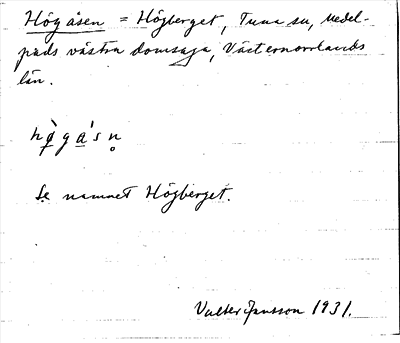 Högåsen = Högberget, Tuna sn, Medel-
pads västra domsaga, Västernorrlands
län.
hø̨̀gа́sn̥
Se namnet Högberget.
Valter Jansson 1931.